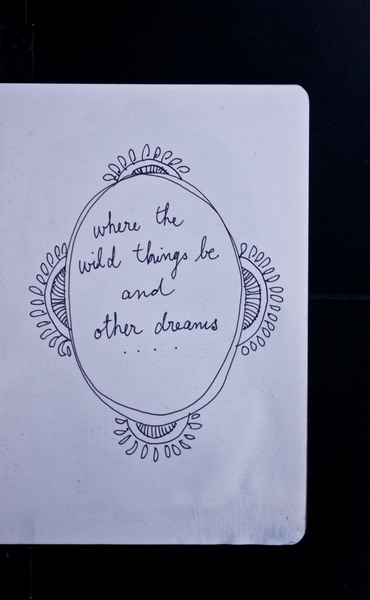 where the
wild things be
and
other dreams
. . . .